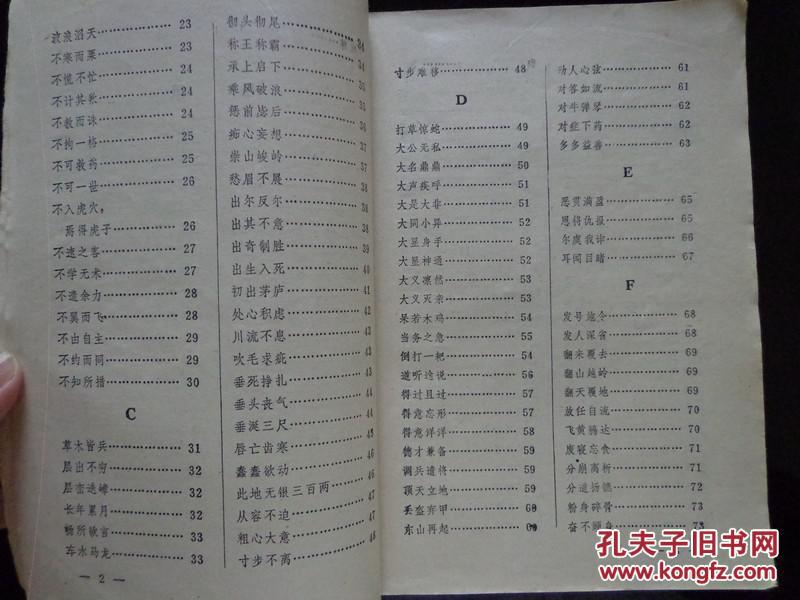 波浪滔天 23
不寒而栗 23
不慌不忙 24
不计其数 24
不教而诛 24
不拘一格 25
不可救药 25
不可一世 26
不入虎穴，
焉得虎子 26
不速之客 27
不学无术 27
不遗余力 28
不翼而飞 28
不由自主 29
不约而同 29
不知所措 30
C
草木皆兵 31
层出不穷 32
层峦迭嶂 32
长年累月 32
畅所欲言 33
车水马龙 33
— 2 —
彻头彻尾 34
称王称霸
承上启下
乘风破浪 35
惩前毖后
痴心妄想
崇山峻岭 37
愁眉不展
出尔反尔 38
出其不意 38
出奇制胜 39
出生入死 40
初出茅庐 41
处心积虑 42
川流不息 43
吹毛求疵
垂死挣扎 44
垂头丧气 44
垂涎三尺
唇亡齿寒
蠢蠢欲动 46
此地无银三百两 46
从容不迫 47
粗心大意 47
寸步不离 48
寸步难移 48
D
打草惊蛇 49
大公无私 49
大名鼎鼎 50
大声疾呼 51
大是大非 51
大同小异 52
大显身手 52
大显神通 52
大义凛然 53
大义灭亲 53
呆若木鸡 54
当务之急 55
倒打一耙 54
道听途说 56
得过且过 57
得意忘形 57
得意洋洋 58
德才兼备 59
调兵遣将 59
顶天立地 59
丢盔弃甲 60
东山再起 60
动人心弦 61
对答如流 61
对牛弹琴 62
对症下药 62
多多益善 63
E
恶贯满盈 65
恩将仇报 65
尔虞我诈 66
耳闻目睹 67
F
发号施令 68
发人深省 68
翻来覆去 69
翻山越岭 69
翻天覆地 69
放任自流 70
飞黄腾达 70
废寝忘食 71
分崩离析 71
分道扬镳 72
粉身碎骨 73
奋不顾身 73
孔夫子旧书网
www.kongfz.com